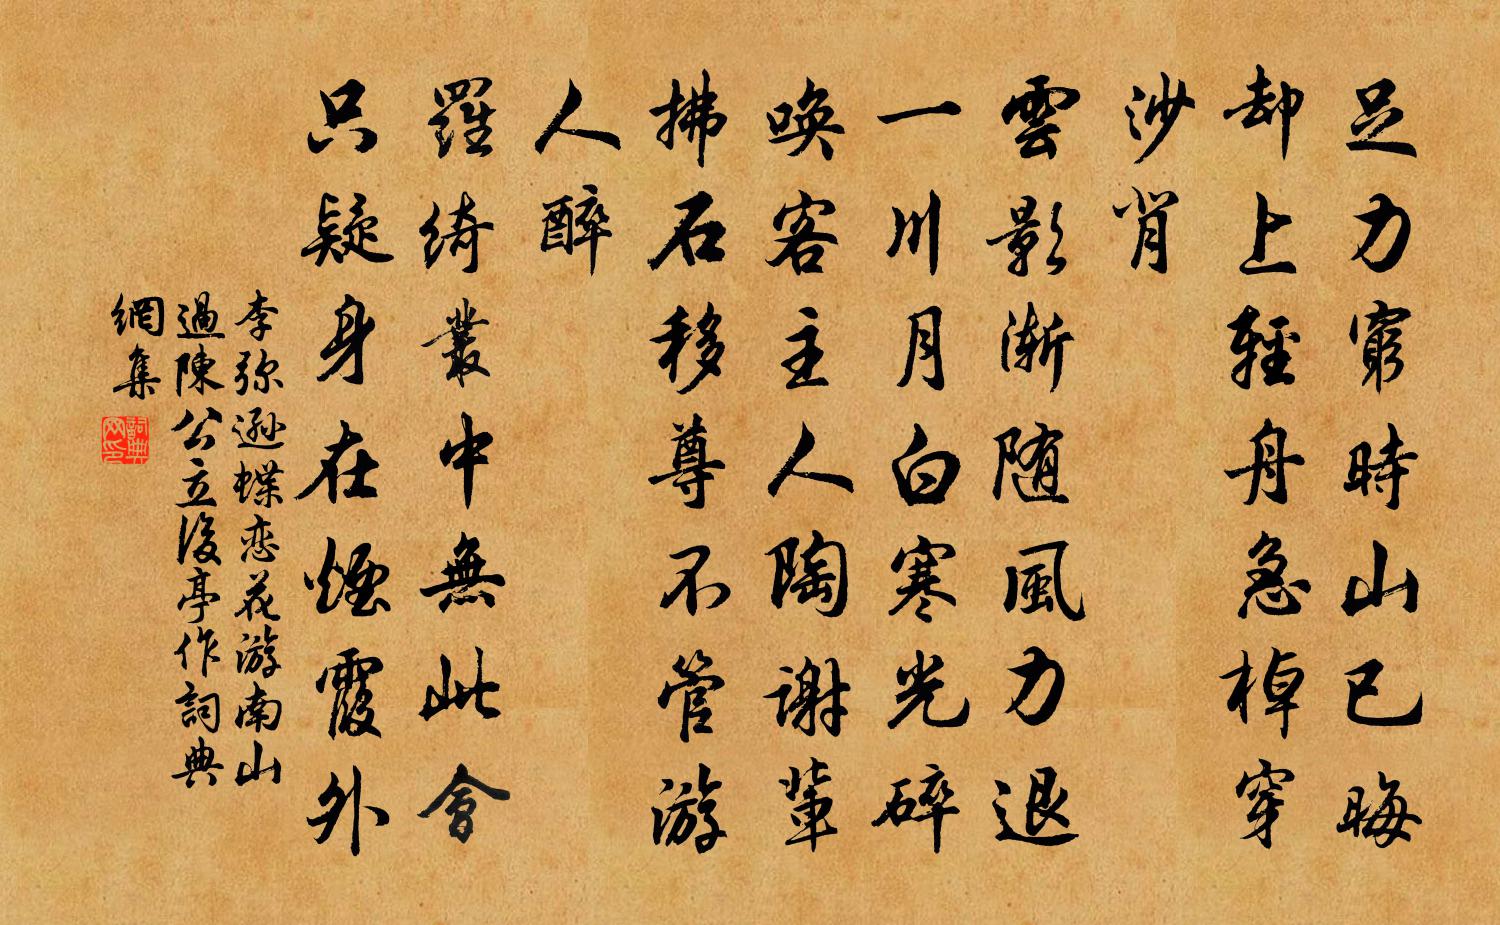 足力窮時山已晦
却上輕舟急棹穿
沙背
雲影漸随風力退
一川月白寒光碎
喚客主人陶謝輩
拂石移尊不管游
人醉
羅綺叢中無此會
只疑身在煙霞外
李弥遜蝶恋花游南山
過陳公立後亭作詞典
網集
詞典
网印